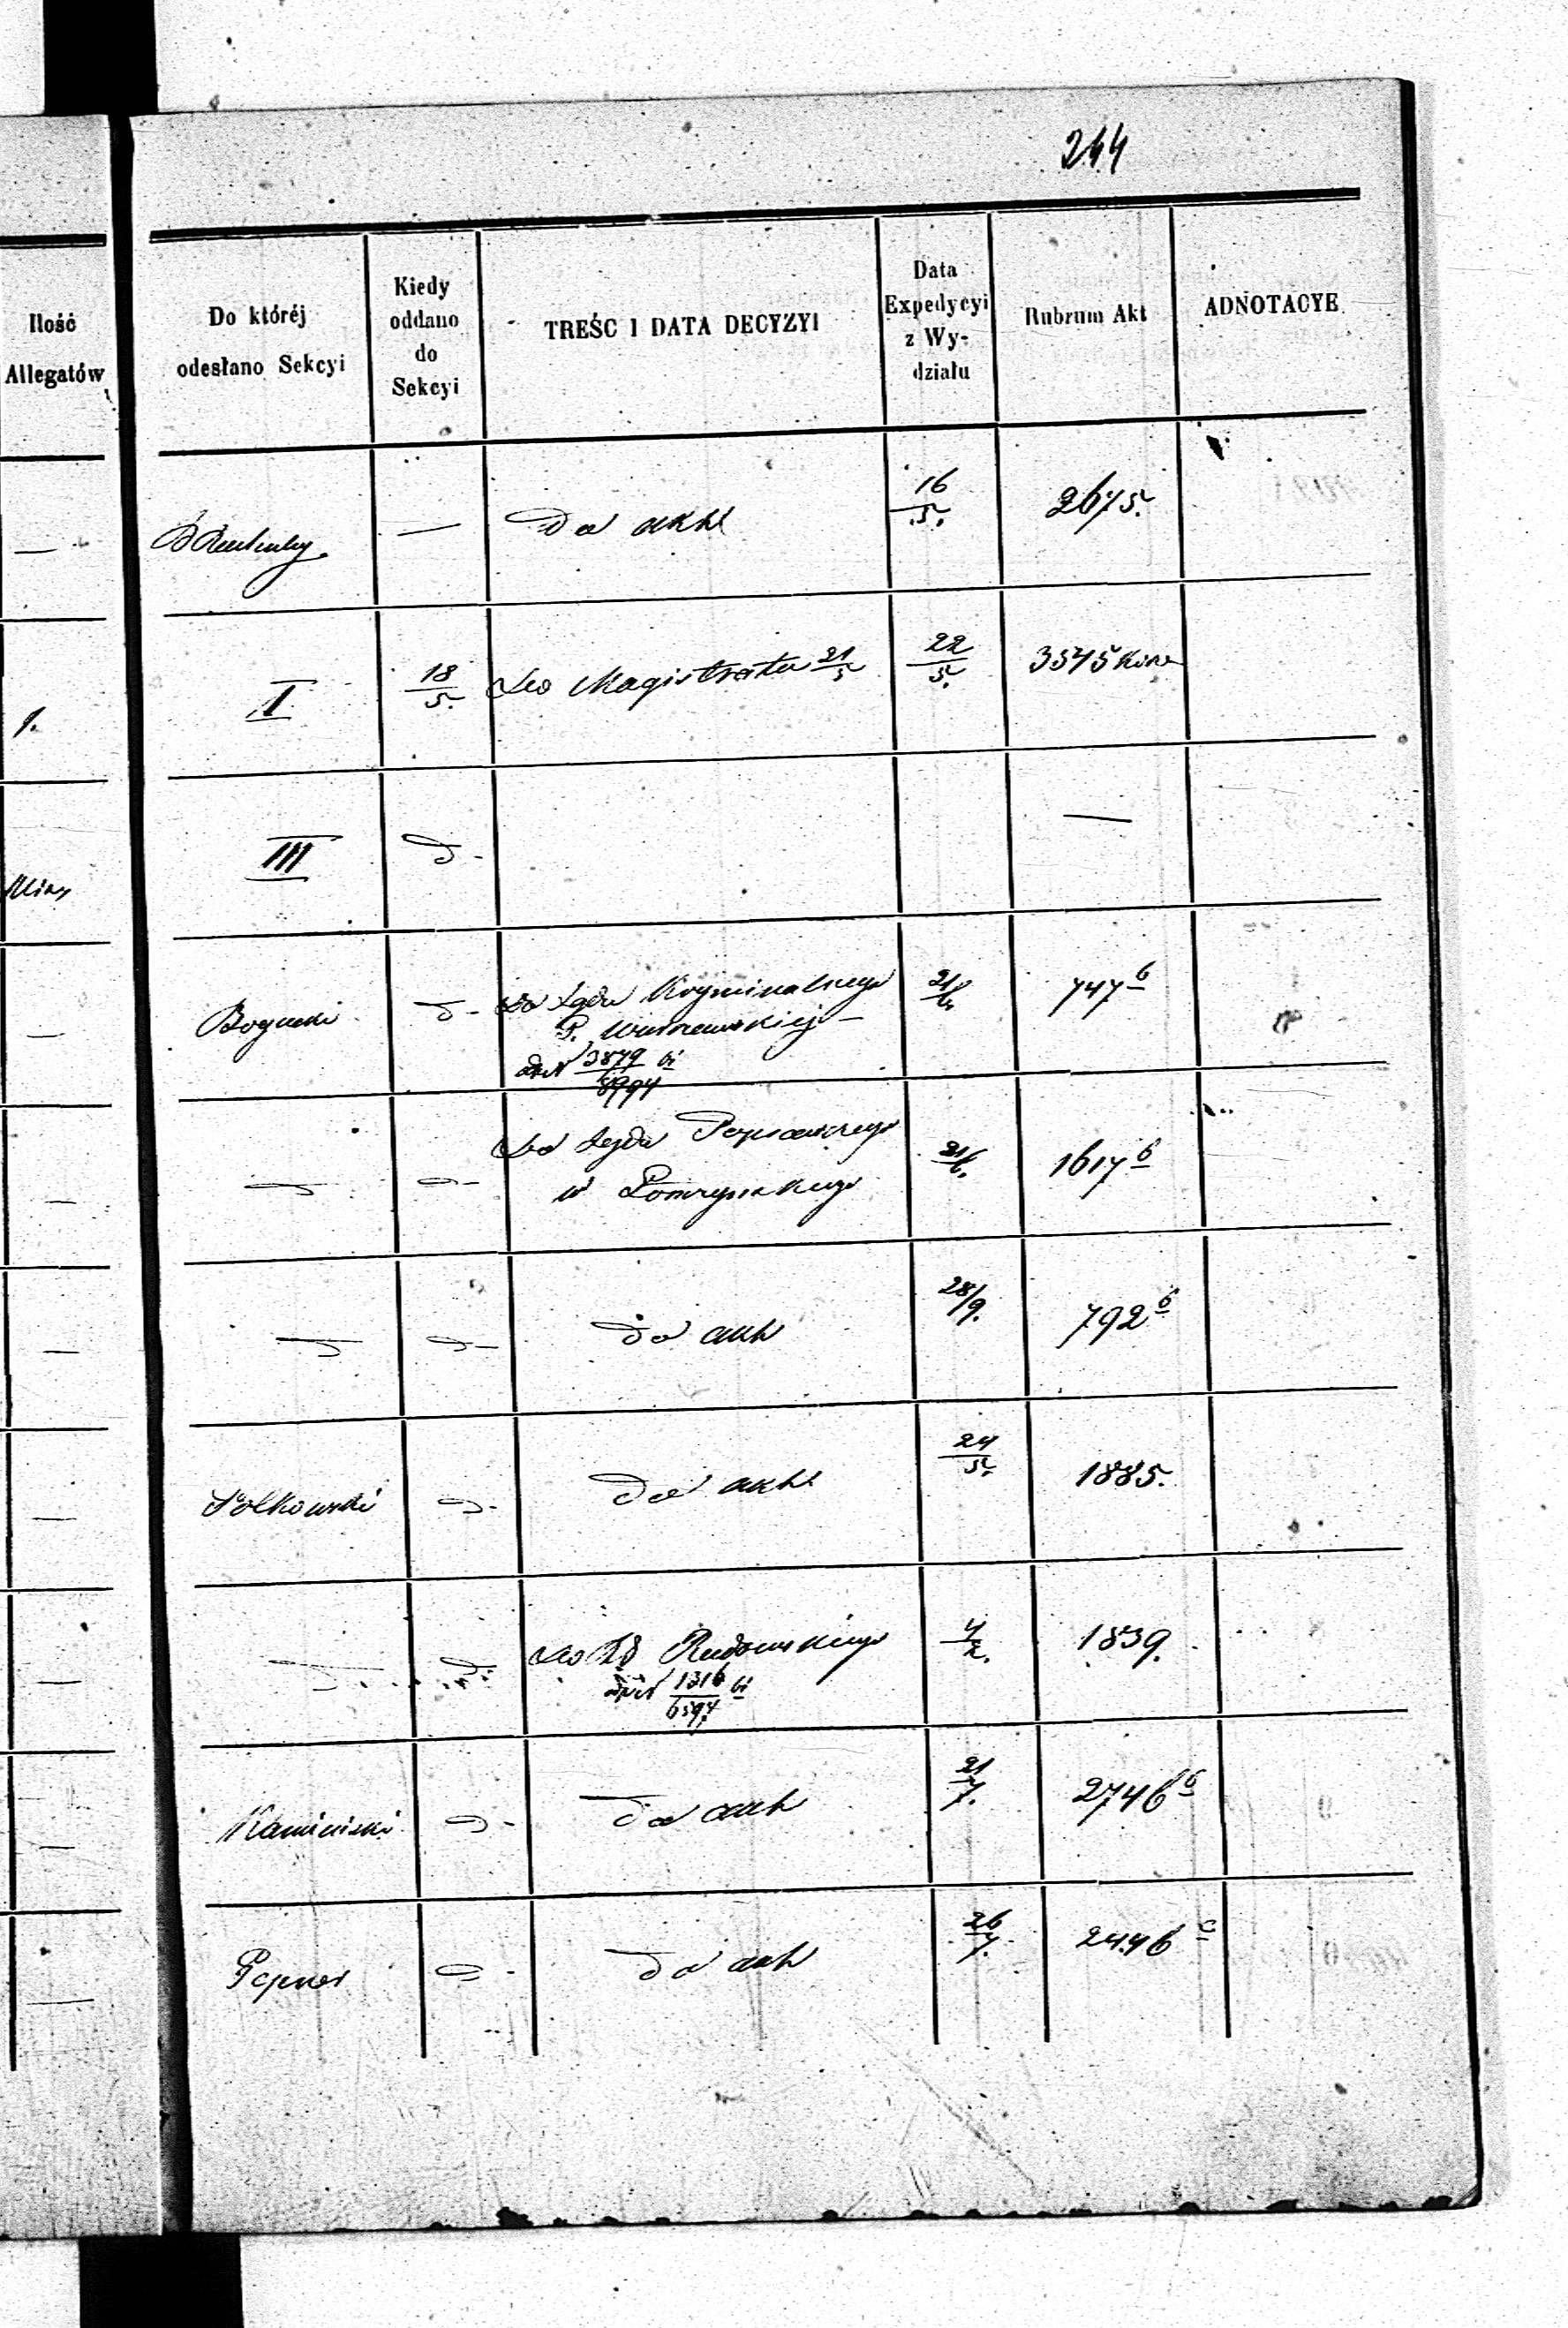 244
Ilość
Allegatów
Do któréj
odesłano Sekcyi
Kiedy
oddano
do
Sekcyi
TREŚC I DATA DECYZYI
Data
Expedycyi
z Wy-
działu
Rubrum Akt
ADNOTACYE
—
—
Do akt
16/5.
2675.
1.
I
18/5.
Do Magistratu 21/5
22/5.
3575
III
d-
—
—
d-
Do Sądu Kryminalnego
P. Warszawskiej -
3879/8994
21/6
747 b
—
d-
Do Sądu Poprawczego
w
21/6.
1617 b
—
d-
Do akt
28/9.
792 b
—
Sołkowski
d-
Do akt
24/5.
1885.
—
d-
Do Radomskiego
1316/6594
1839.
—
Kamiński
d-
Do akt
21/7.
2746 b
—
d-
Do akt
26/7.
2446 c